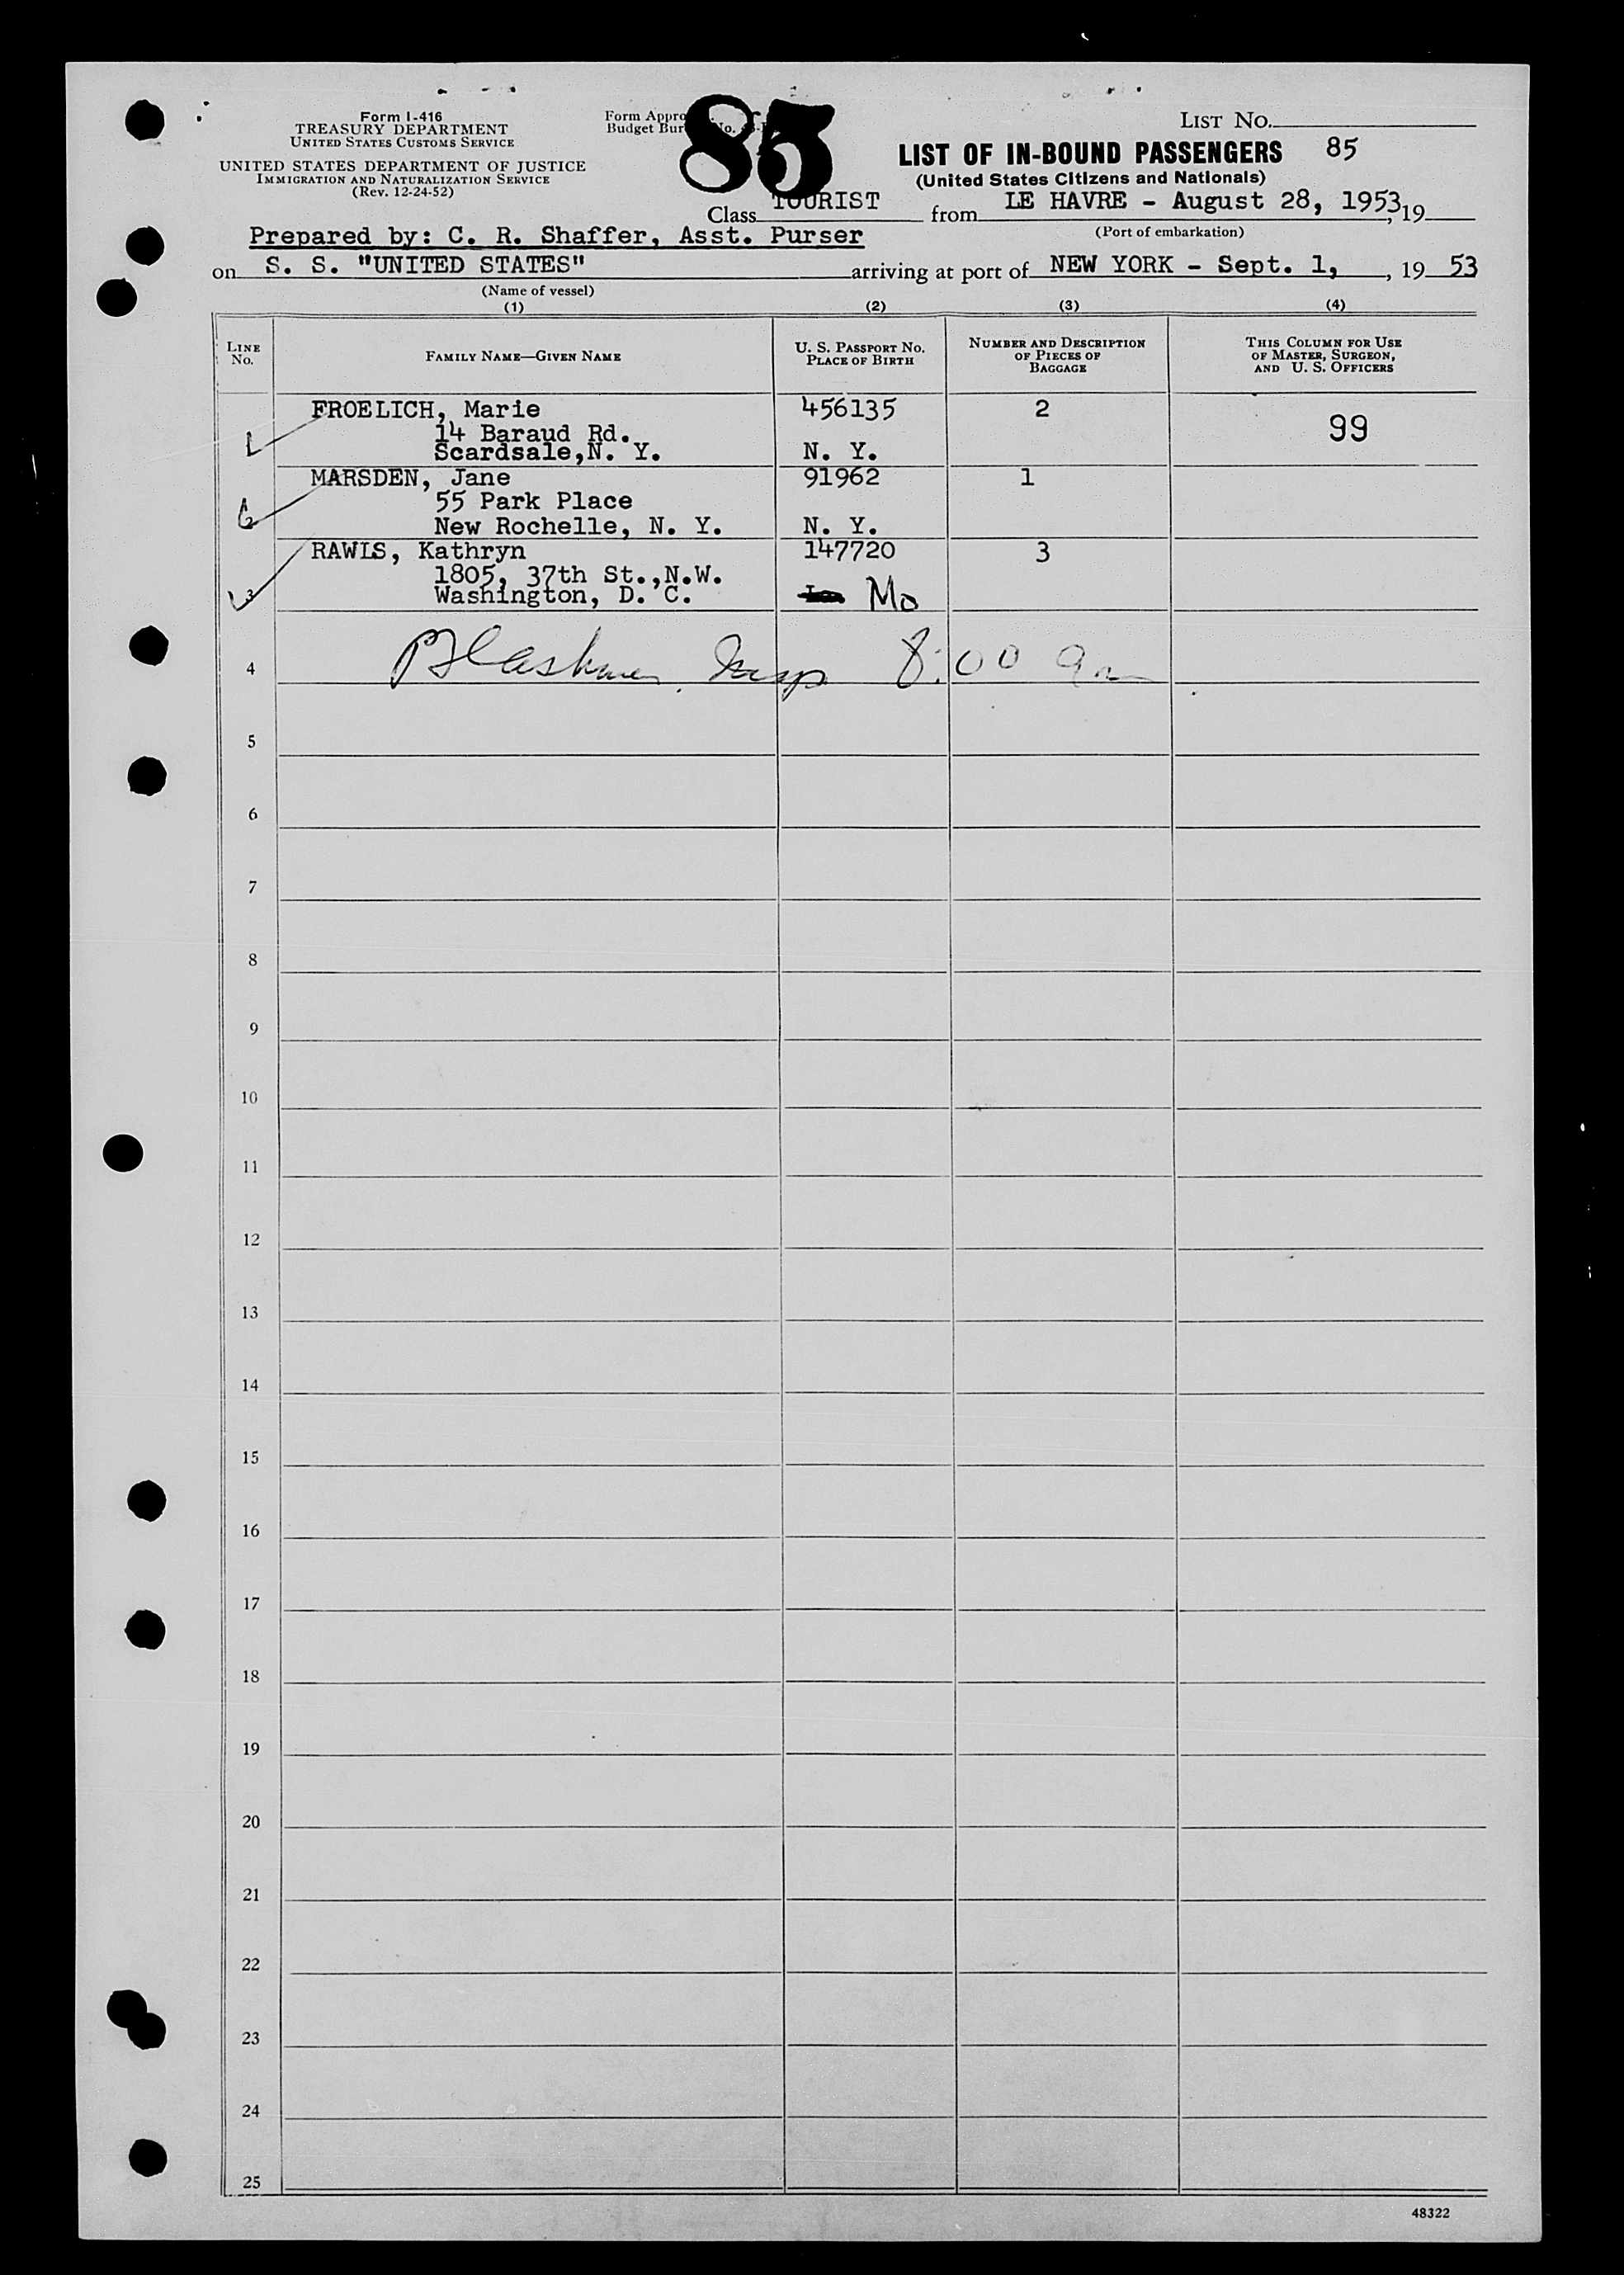 Form I-416
TREASURY DEPARTMENT
UNITED STATES CUSTOMS SERVICE
UNITED STATES DEPARTMENT OF JUSTICE
IMMIGRATION AND NATURALIZATION SERVICE
(Rev. 12-24-52)
Form Appro
Budget Bur No.
85
LIST NO.
LIST OF IN-BOUND PASSENGERS 85
(United States Citizens and Nationals)
Class TOURIST from LE HAVRE - August 28, 1953, 19
(Port of embarkation)
Prepared by: C. R. Shaffer, Asst. Purser
on S. S. "UNITED STATES" arriving at port of NEW YORK - Sept. 1, , 19 53
(Name of vessel)
(1) (2) (3) (4)
LINE NO. FAMILY NAME—GIVEN NAME U. S. PASSPORT NO. PLACE OF BIRTH NUMBER AND DESCRIPTION OF PIECES OF BAGGAGE THIS COLUMN FOR USE OF MASTER, SURGEON, AND U. S. OFFICERS
FROELICH, Marie 456135 2 99
14 Baraud Rd.
1 Scardsale,N. Y. N. Y.
MARSDEN, Jane 91962 1
55 Park Place
2 New Rochelle, N. Y. N. Y.
RAWLS, Kathryn 147720 3
1805, 37th St.,N.W.
3 Washington, D. C. Mo
4 Insp 8:00 am
5
6
7
8
9
10
11
12
13
14
15
16
17
18
19
20
21
22
23
24
25
48322